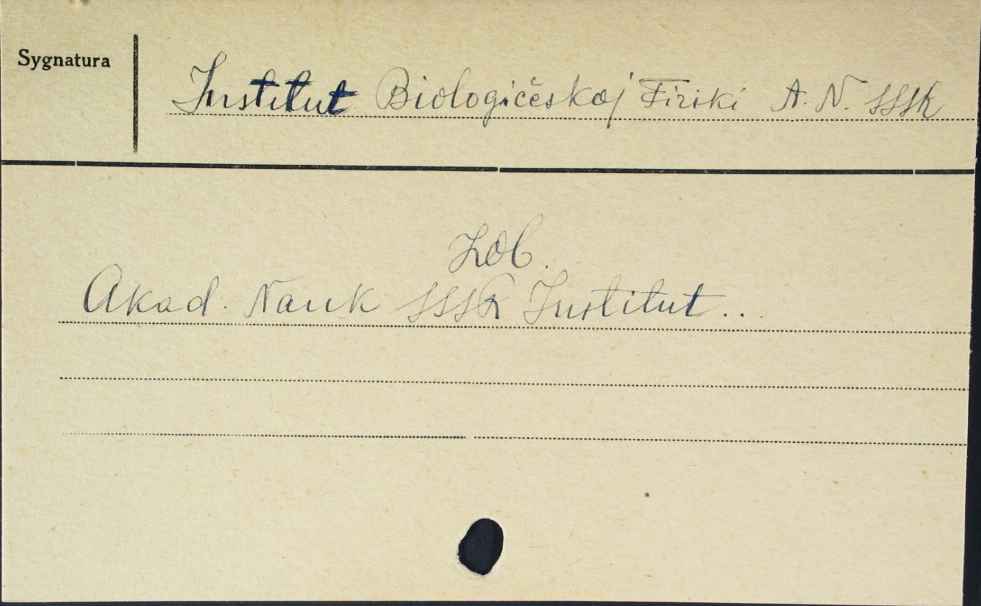 Sygnatura
Institut Biologičeskoj Fiziki A. N. SSSR
Zob.
Akad. Nauk SSSR Institut...